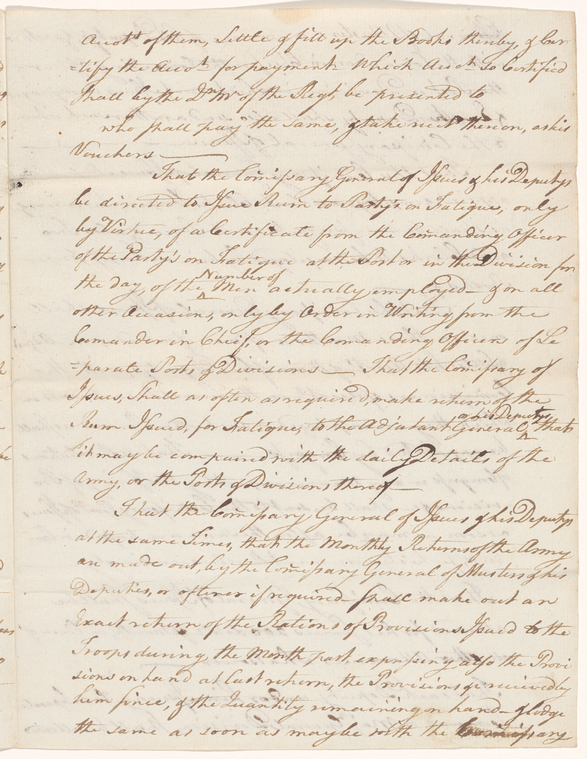 Accots of them, Settle & fill up the Books thereby, & Cer
=tify the Accot. for payment Which Acct. so Certified
Shall by the Qr. Mr. of the Regt. be presented to
who shall pay the same, & take rect. thereon, as his
Vouchers —
That the Comissary General of Issues & his Deputys
be directed to Issue Rum to Party's on Fatigue, only
by Virtue, of a Certificate from the Comanding Officer
of the Party's on Fatigue at the Post or in the Division for
the day, of the Number of Men actually employed — & on all
other Occasions, only by Order in Writing from the
Comander in Chief, or the Comanding Officers of Se
=parate Posts or Divisions — That the Comissary of
Issues, Shall as often as required, make return of the
Rum Issued, for Fatigue, to the Adjutant General, or his Deputys that
it may be compaired with the daily Details of the
Army, or the Posts or Divisions thereof —
That the Comissary General of Issues & his Deputys
at the same Times, that the Monthly Returns of the Army
are made out, by the Comissary General of Musters & his
Deputies, or oftener if required shall make out an
Exact return of the Rations of Provisions Issued to the
Troops during, the Month past, expressing also the Provi
sions on hand at last return, the Provisions received by
him since, & the Quantity remaining on hand — & lodge
the same as soon as may be with the Comissary